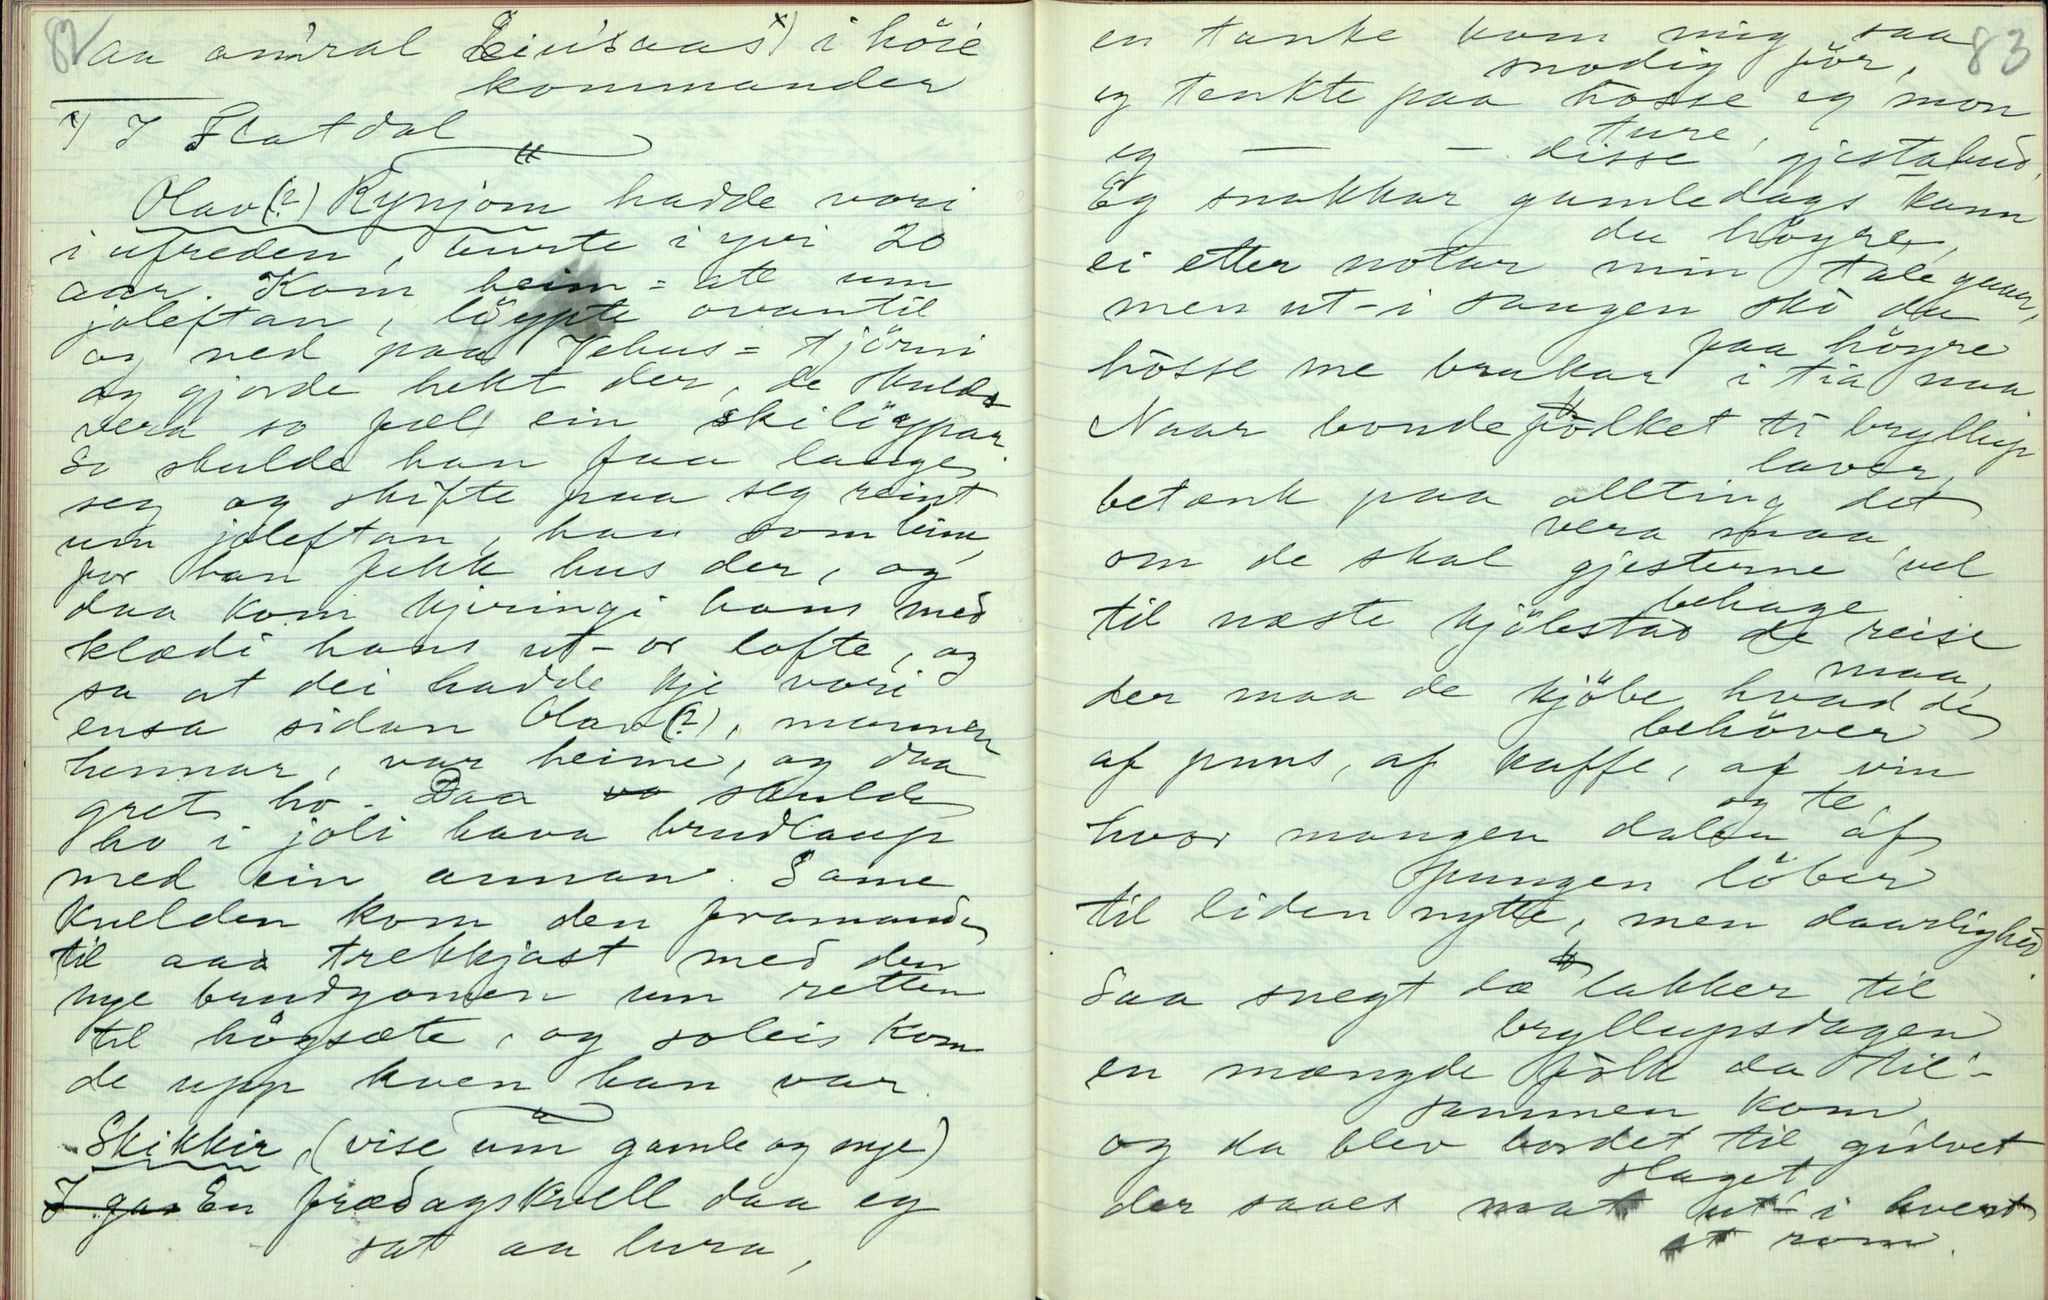 82
aa amral Leiulsaas x) i höie
kommander
x) I Flatdal
"
Olav (?) Rynjom hadde vori
i ufreden, burte i yvi 20
aar. Kom heim-att um
joleftan, löypte ovantil
og ned paa Jehus-tjörni
og gjorde hekt der, de skulde
vera so fæl ein skilöypar.
So skulde han faa lauge
seg og skifte paa seg reint
um joleftan, han som heime,
for han fekk hus der, og
daa kom kjeringi hans med
klædi hans ut-or lofte, og
sa at dei hadde kje vori
ensa sidan Olav (?), mannen
hennar, var heime, og daa
gret ho. Daa skulde
ho i joli hava brudlaup
med ein annan. Same
kvelden kom den framande
til aaa trekkjast med den
nye brudgomen um retten
til högsæte, og soleis kom
de upp kven han var.
"
Skikkir, (vise um gamle og nye)
I gaa En frædagskvell daa eg
sat aa lura,
83
en tanke kom mig saa
snodig för,
eg tenkte paa hosse eg mon
ture,
eg — — disse gjestabud.
Eg snakkar gamledags kann
du höyre,
ei etter notar min tale gaar,
men ut-i sangen sko du
faa höyre
hosse me brukar i tia naa
"
Naar bondefolket ti bryllup
laver,
betænk paa allting det
vera maa,
om de skal gjesterne vel
behage
til næste kjöbstad de reise
maa,
der maa de kjöbe hvad de
behöver
af puns, af kaffe, af vin
og te,
hvor mangen daler af
pungen löber
til liden nytte, men daarlighed.
"
Saa snegt dæ lakker til
bryllupsdagen
en mængde folk da til-
sammen kom
og da blev bordet til gulvet
slaget
der saaes mat ut-i hvert
et rom.